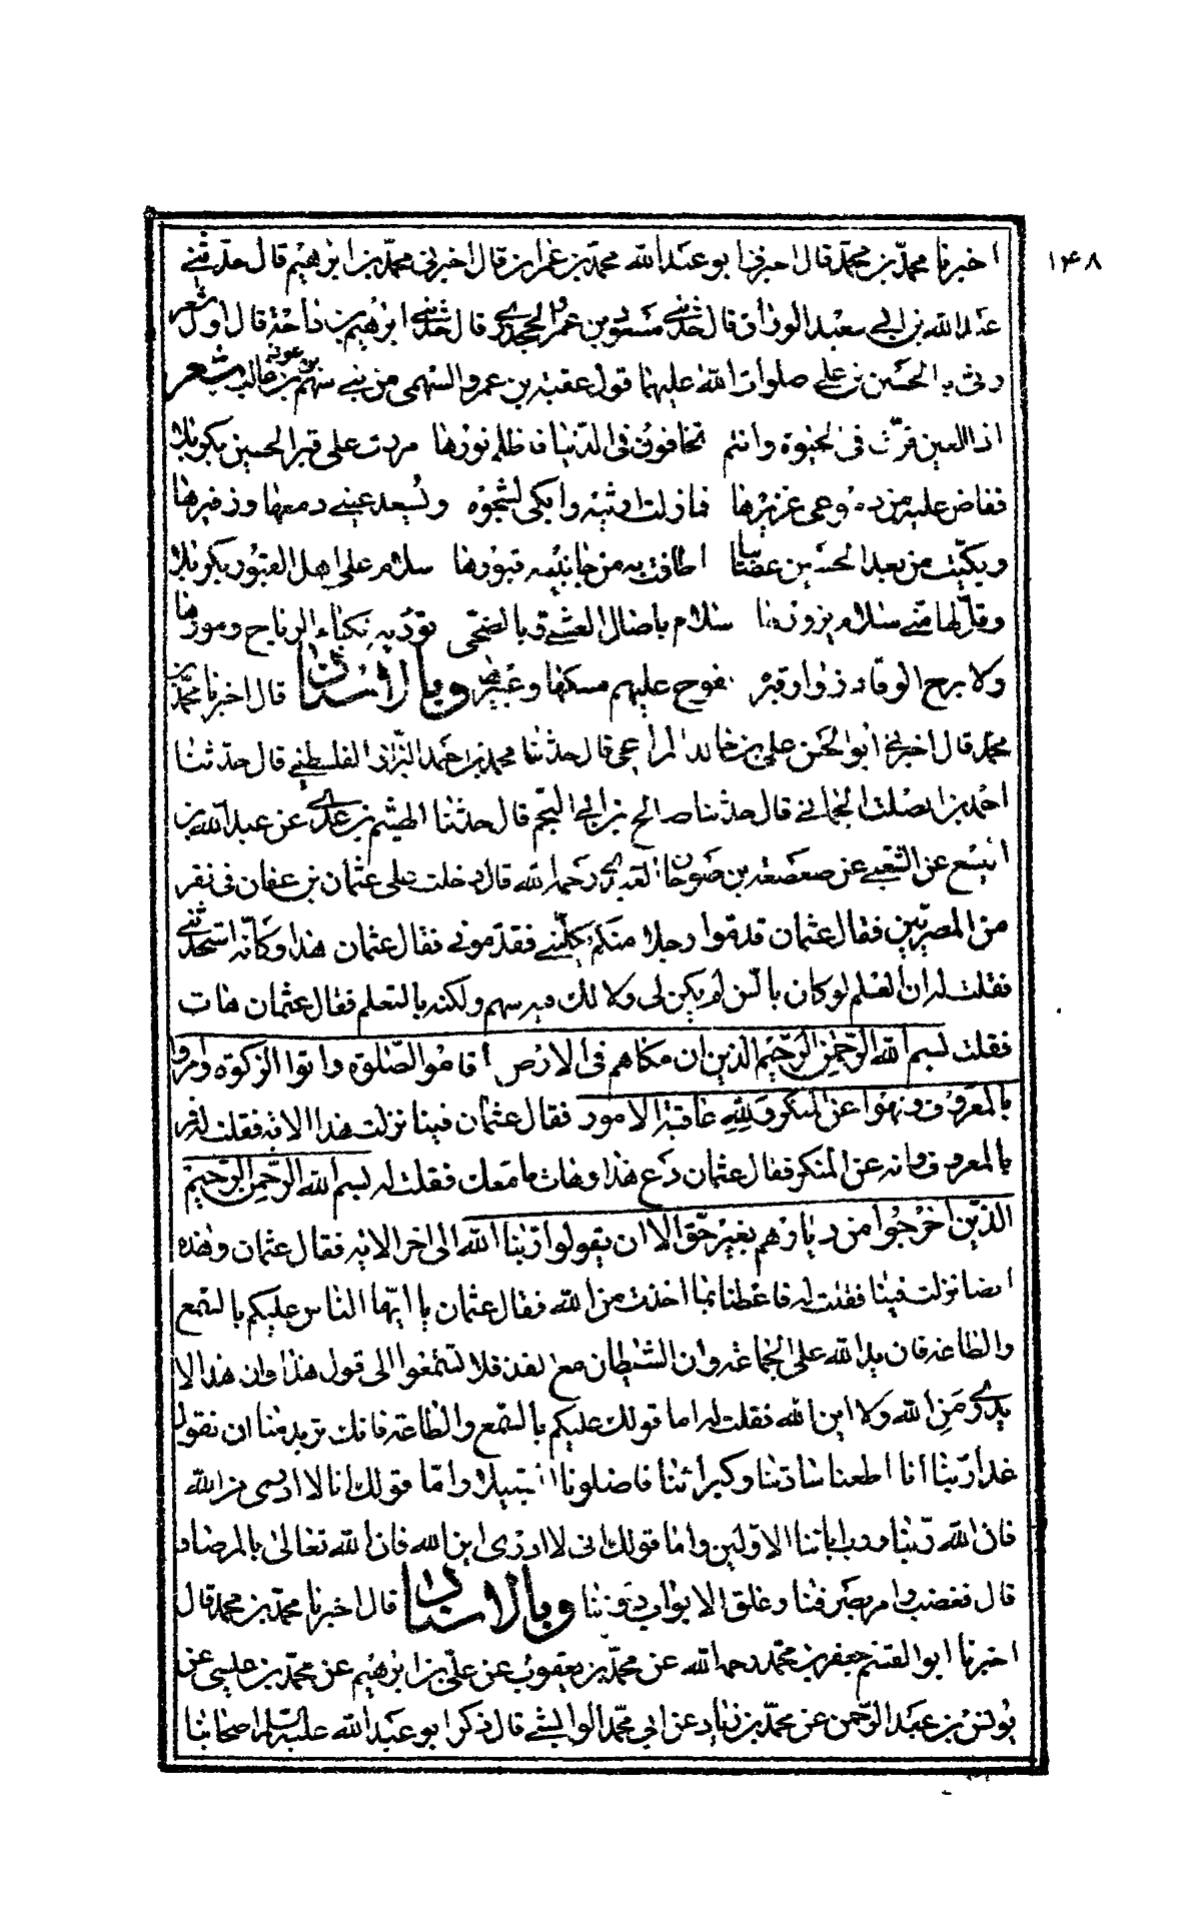 ١٤٨
اخبرنا محمّد بن محمّد قال اخبرنى ابو عبد الله محمّد بن عمران قال اخبرنى محمّد بن ابرهيم قال حدّثنى
عبد الله بن ابى سعيد الوراق قال حدّثنى مسعود بن عمرو الجحدرى قال حدّثنى ابرهيم بن داحة قال اول شعر
رثى به الحسين بن على صلوات الله عليهما قول عقبة بن عمرو السهمى من بنى سهم بن عوف بن غالب شعر
اذا العين قرّت فى الحيوة وانتم تخافون فى الدّنيا فاظلم نورها مررت على قبر الحسين بكربلا
ففاض عليه من دموعى غزيرها فما زلت ارثيه وابكى لشجوه ويسعد عينى دمعها وزفيرها
وبكّيت من بعد الحسين عصائبا اطافت به من جانبيه قبورها سلام على اهل القبور بكربلا
وقلّ لها منّى سلام يزورها سلام باصال العشى وبالضحى تؤديه نكباء الرياح ومورها
ولا برح الوفاد زوار قبره يفوح عليهم مسكها وعبيرها وبالاسناد قال اخبرنا محمّد بن
محمّد قال اخبرنى ابو الحسن على بن خالد المراغى قال حدّثنا محمد بن احمد البزّاز الفلسطينى قال حدثنا
احمد بن الصلت الحمانى قال حدثنا صالح بن ابى النجم قال حدثنا الهيثم بن عدى عن عبد الله بن
اليسع عن الشعبى عن صعصعة بن صوحان العبدى رحمه الله قال دخلت على عثمان بن عفان فى نفر
من المصريّين فقال عثمان قدموا رجلا منكم يكلّمنى فقدمونى فقال عثمان هذا وكانّه استحدثنى
فقلت له ان العلم لو كان بالسن لم يكن لى ولا لك فيه سهم ولكنه بالتعلم فقال عثمان هات
فقلت بسم الله الرّحمن الرّحيم الذين ان مكناهم فى الارض اقاموا الصّلوة واتوا الزكوة وامروا
بالمعروف ونهوا عن المنكر ولله عاقبة الامور فقال عثمان فينا نزلت هذه الاية فقلت له فمر
بالمعروف وانه عن المنكر فقال عثمان دع هذا وهات ما معك فقلت له بسم الله الرّحمن الرّحيم
الذين اخرجوا من ديارهم بغير حقّ الا ان يقولوا ربّنا الله الى اخر الاية فقال عثمان وهذه
ايضا نزلت فينا فقلت له فاعطنا بما اخذت من الله فقال عثمان يا ايّها الناس عليكم بالسّمع
والطاعة فان يد الله على الجماعة وان الشيطان مع الفذ فلا تستمعوا الى قول هذا وان هذا لا
يدرى من الله ولا اين الله فقلت له اما قولك عليكم بالسّمع والطاعة فانك تريد منا ان نقول
غدا ربّنا انا اطعنا سادتنا وكبراءنا فاضلونا السّبيلا وامّا قولك انا لا ادرى من الله
فان الله ربّنا ورب ابائنا الاوّلين واما قولك انى لا ادرى اين الله فان الله تعالى بالمرصاد
قال فغضب وامر بصرفنا وغلق الابواب دوننا وبالاسناد قال اخبرنا محمّد بن محمد قال
اخبرنا ابو القسم جعفر بن محمّد رحمه الله عن محمّد بن يعقوب عن علىّ بن ابرهيم عن محمّد بن عيسى عن
يونس بن عبد الرّحمن عن محمّد بن زياد عن ابى محمّد الوابشى قال ذكر ابو عبد الله عليه السّلم اصحابنا